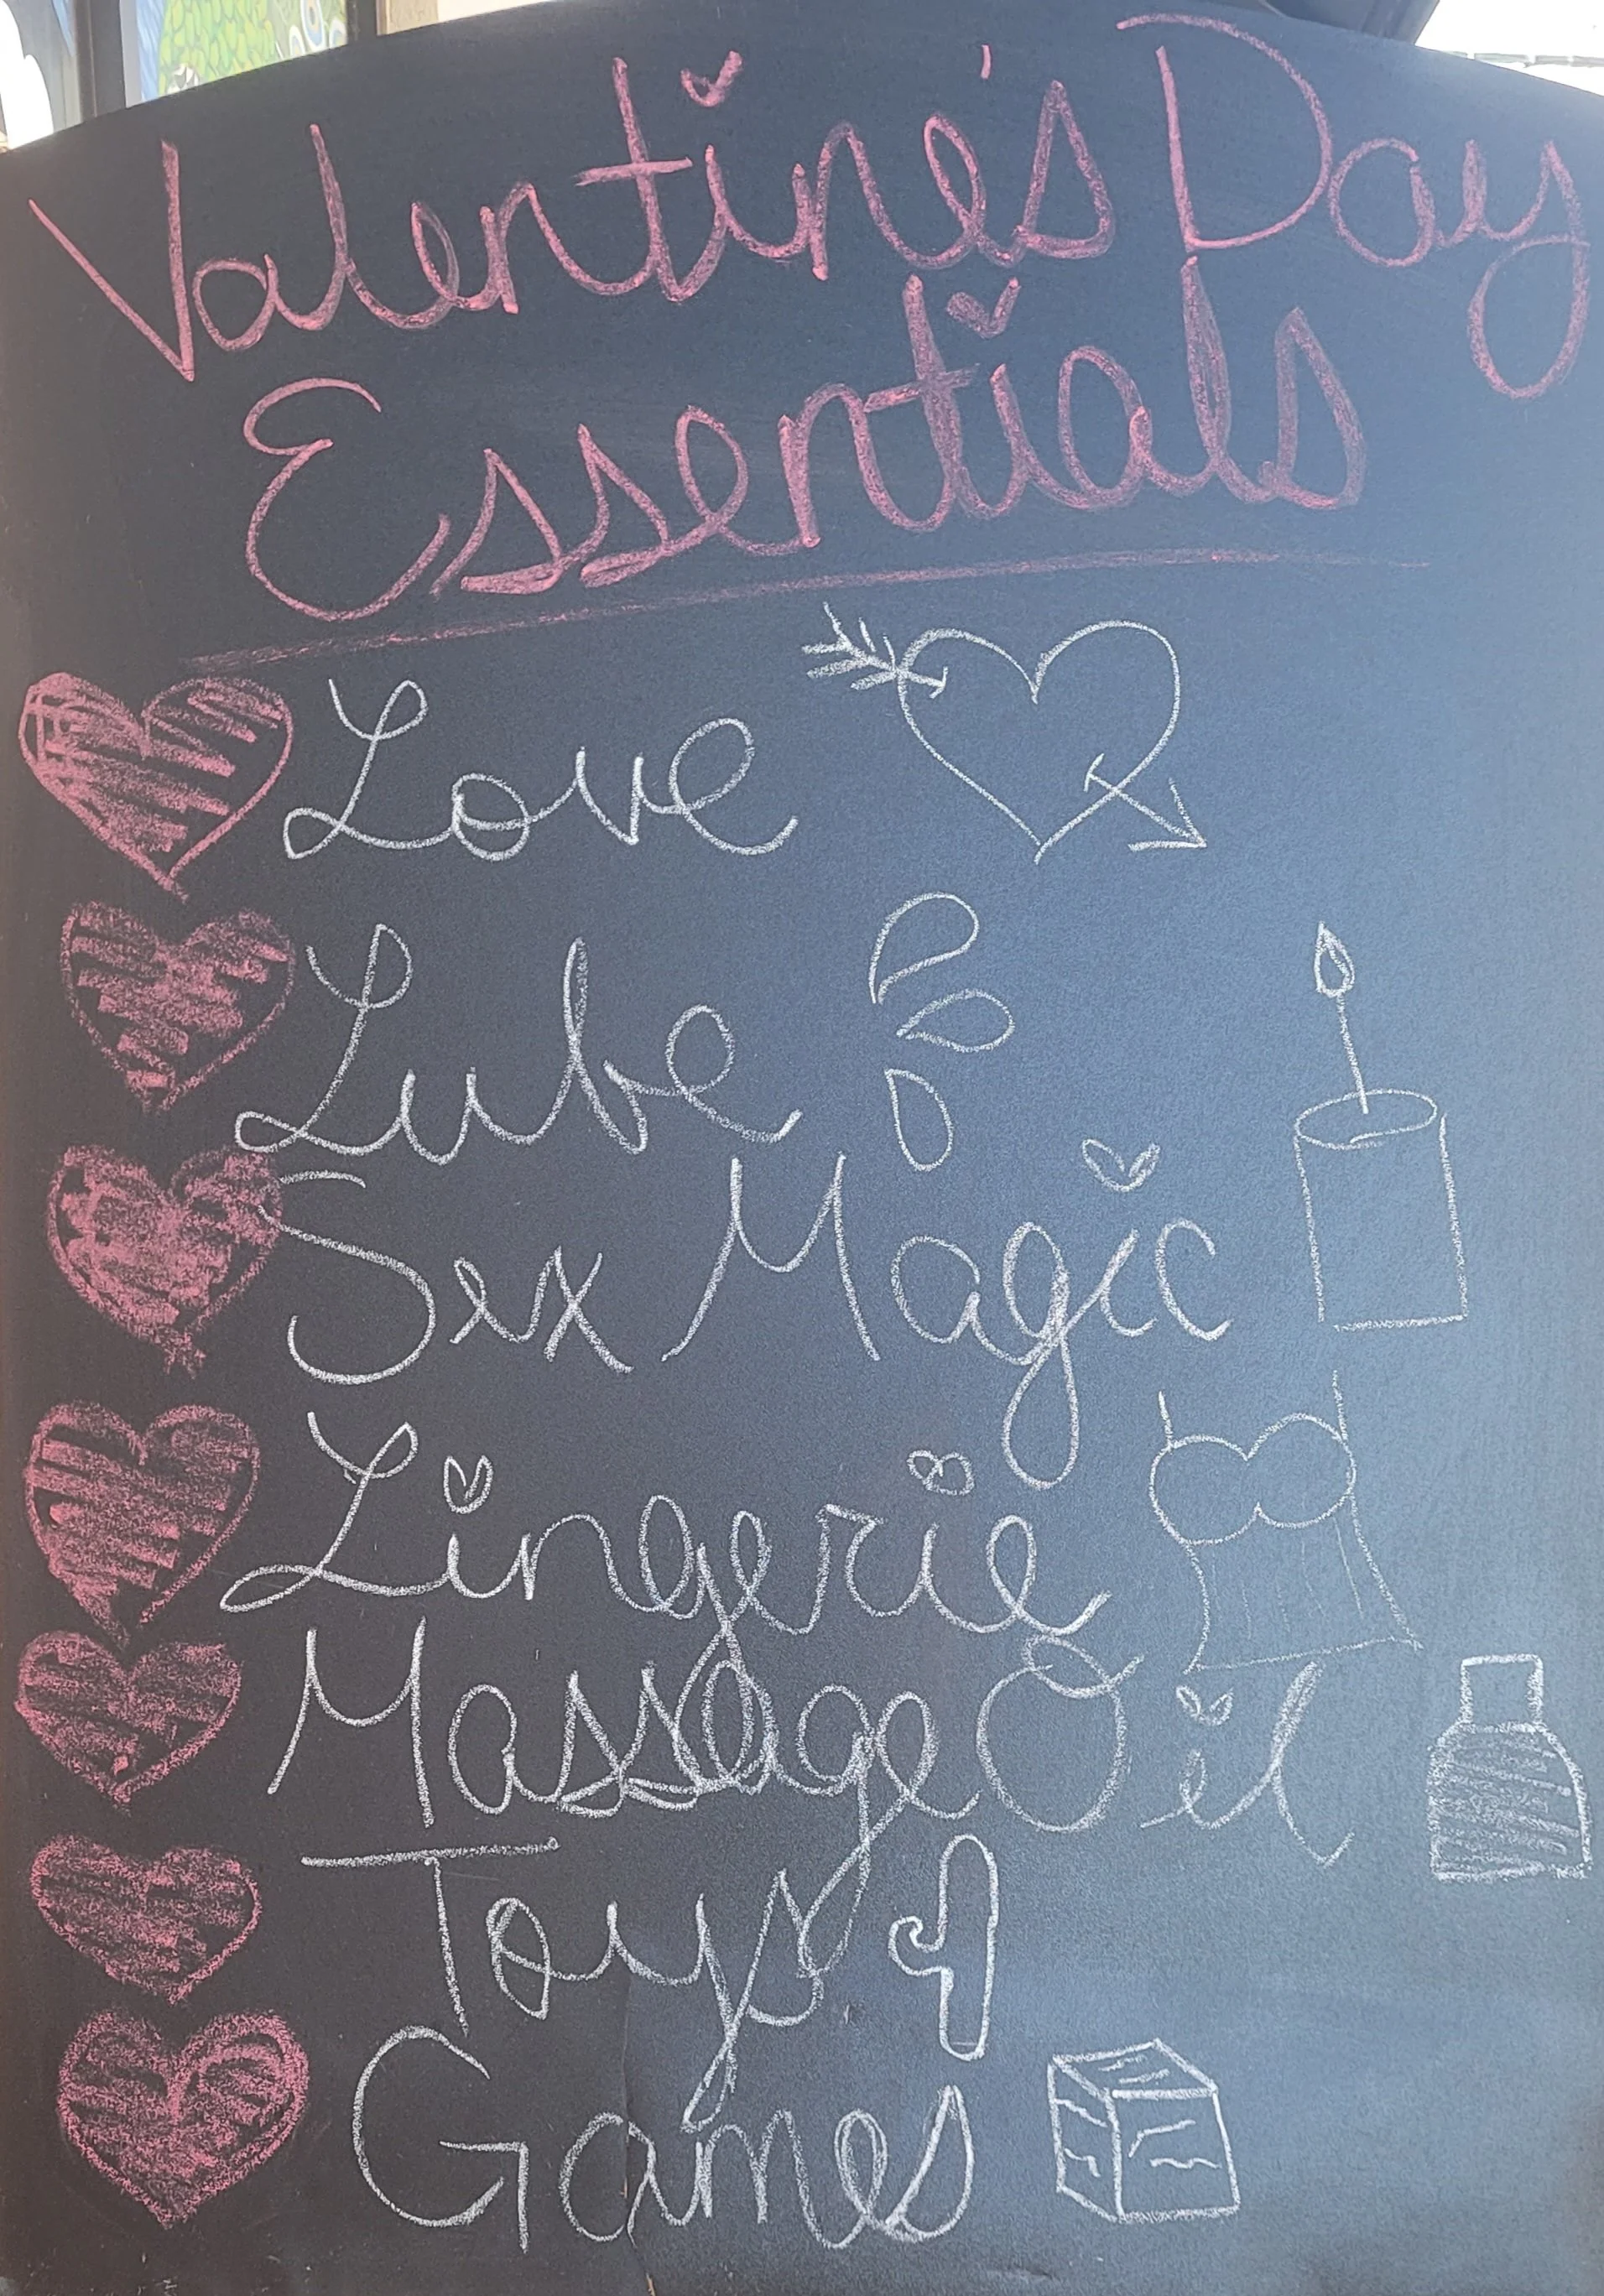 Valentine's Day
Essentials
Love
Lube
Sex Magic
Lingerie
Massage Oil
Toys
Games